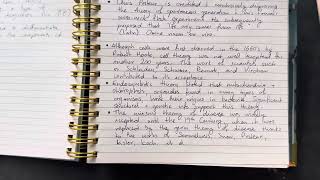 Louis Pasteur is credited w/ conclusively disproving
the theory of spontaneous generation with his famous
flask experiment. He subsequently
proposed that "life only comes from life."
(Latin)
Although cells were first observed in the 1660's by
Robert Hooke, cell theory was not well accepted for
another 200 years. The work of scientists such
as Schleiden, Schwann, Remak, and Virchow
contributed to its acceptance.
Endosymbiotic theory states that mitochondria &
chloroplasts, organelles found in many types of
organisms, have their origins in bacteria. Significant
structural & genetic info support this theory.
The miasma theory of disease was widely
accepted until the 19th Century, when it was
replaced by the germ theory of disease thanks
to the works of Semmelweis, Snow, Pasteur,
Lister, Koch,